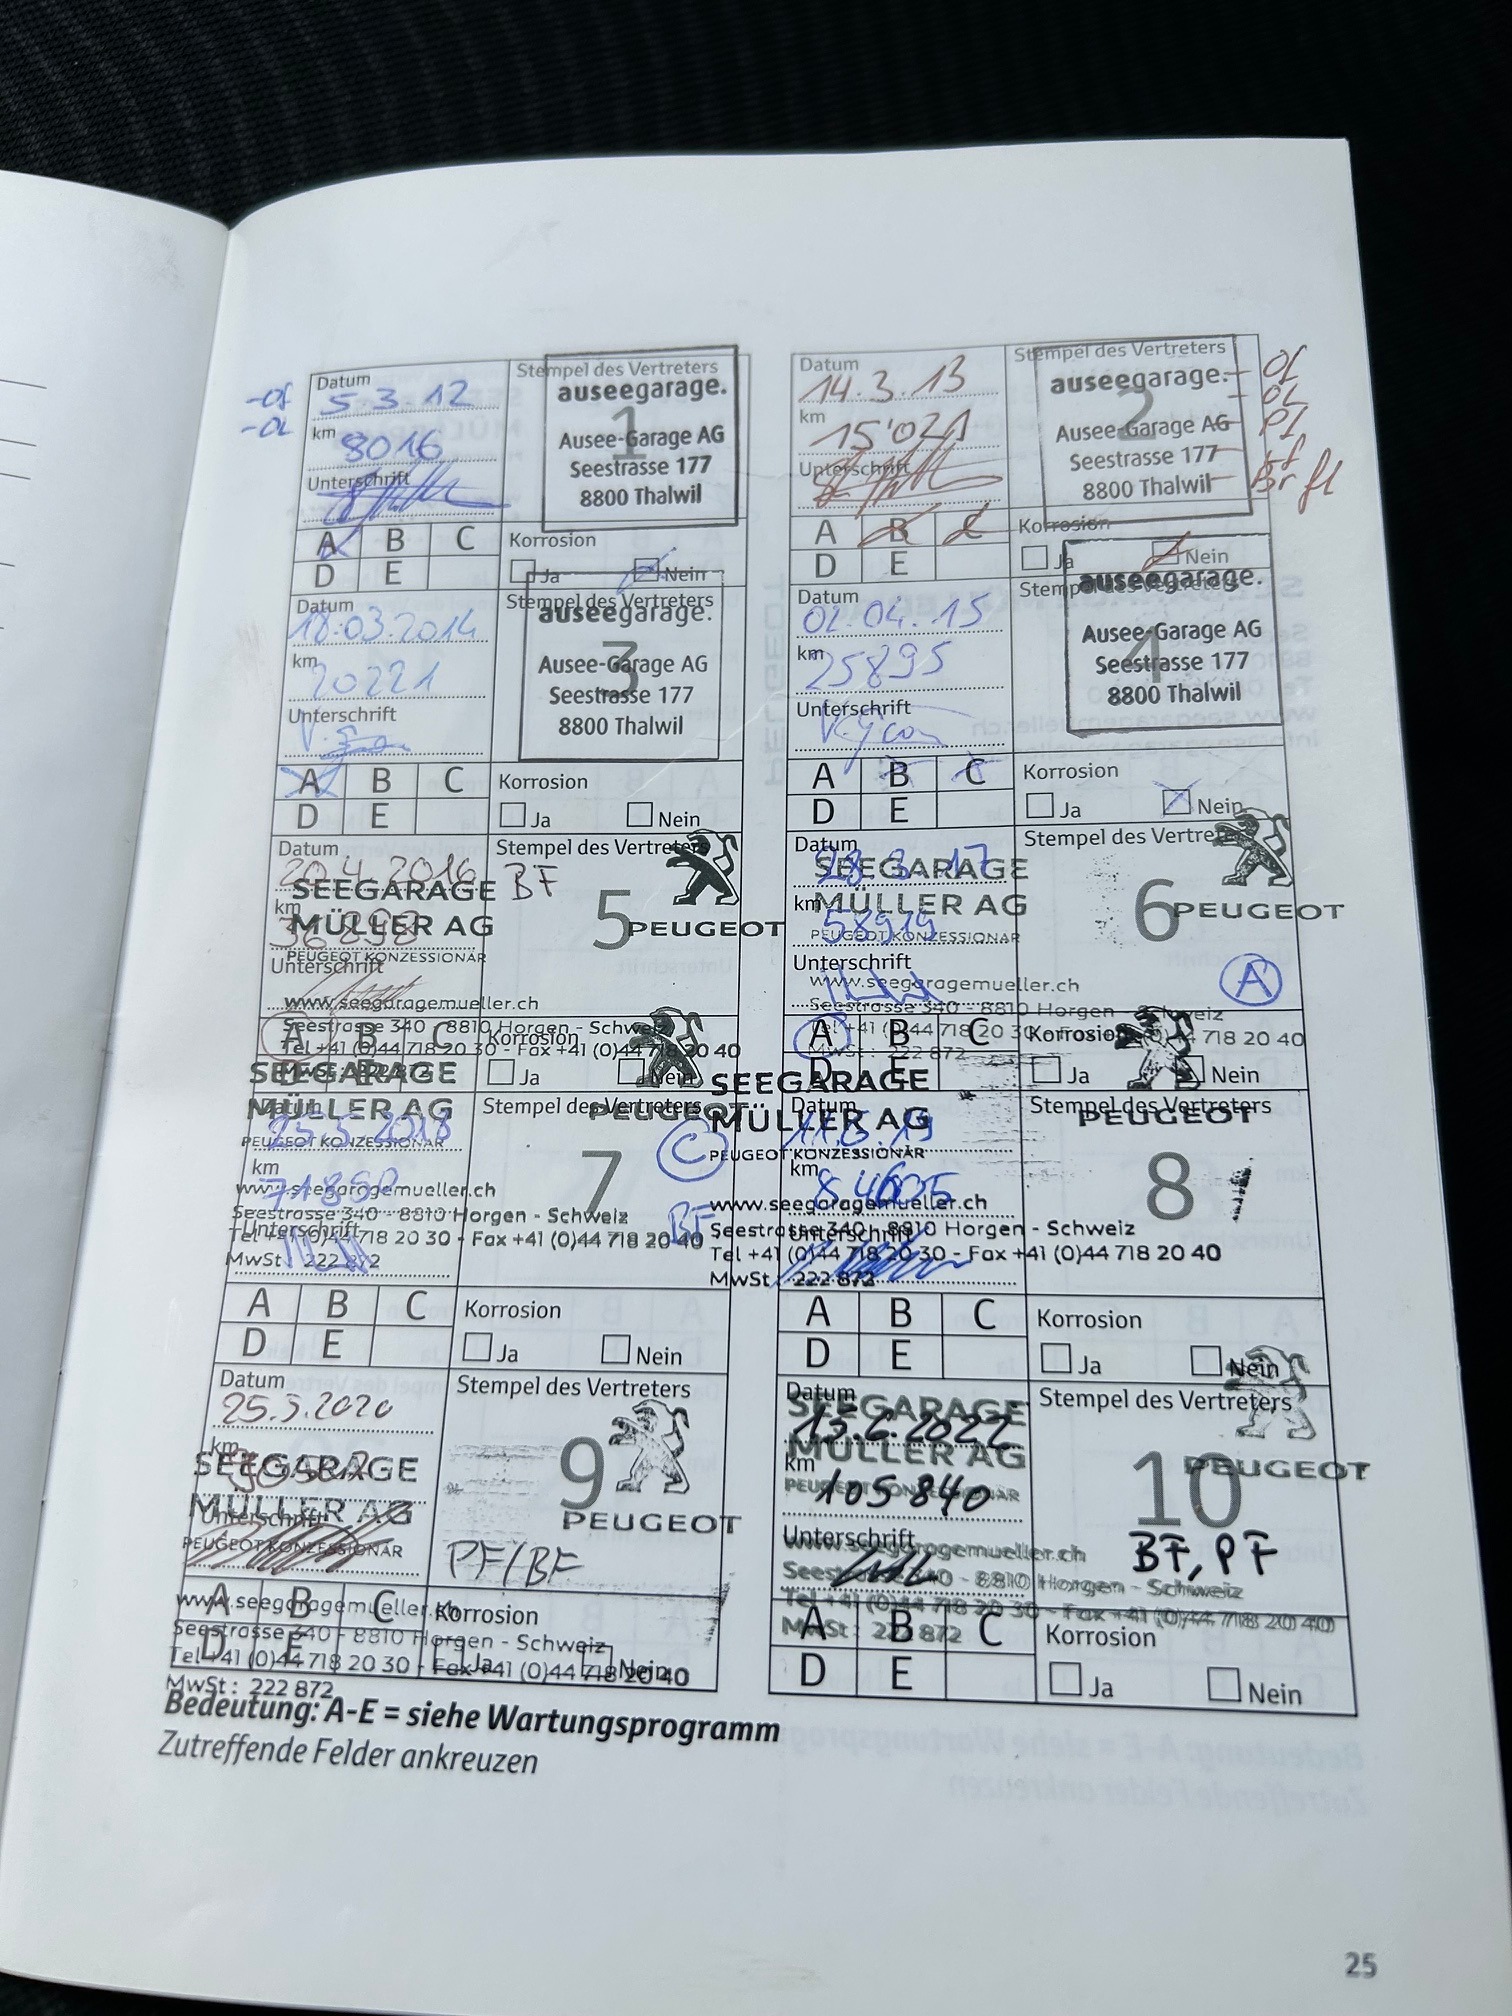 -Of
-OL
Datum
5.3.12
km
8016
Unterschrift
Stempel des Vertreters
1
auseegarage.
Ausee-Garage AG
Seestrasse 177
8800 Thalwil
A B C
D E
Korrosion
Ja Nein
Datum
14.3.13
km
15'021
Unterschrift
Stempel des Vertreters
2
auseegarage.
Ausee-Garage AG
Seestrasse 177
8800 Thalwil
A B C
D E
Korrosion
Ja Nein
Datum
18.03.2014
km
20221
Unterschrift
Stempel des Vertreters
3
auseegarage.
Ausee-Garage AG
Seestrasse 177
8800 Thalwil
A B C
D E
Korrosion
Ja Nein
Datum
02.04.15
km
25895
Unterschrift
Stempel des Vertreters
4
auseegarage.
Ausee-Garage AG
Seestrasse 177
8800 Thalwil
A B C
D E
Korrosion
Ja Nein
Datum
20.4.2016
km
36898
Unterschrift
Stempel des Vertreters
BF
5
PEUGEOT
SEEGARAGE
MÜLLER AG
PEUGEOT KONZESSIONÄR
www.seegaragemueller.ch
Seestrasse 340 - 8810 Horgen - Schweiz
Tel +41 (0)44 718 20 30 - Fax +41 (0)44 718 20 40
MwSt : 222 872
A B C
D E
Korrosion
Ja Nein
Datum
28.3.17
km
58919
Unterschrift
Stempel des Vertreters
6
PEUGEOT
A
SEEGARAGE
MÜLLER AG
PEUGEOT KONZESSIONÄR
www.seegaragemueller.ch
Seestrasse 340 - 8810 Horgen - Schweiz
Tel +41 (0)44 718 20 30 - Fax +41 (0)44 718 20 40
MwSt : 222 872
A B C
D E
Korrosion
Ja Nein
Datum
25.5.2018
km
Unterschrift
Stempel des Vertreters
7
PEUGEOT
C
BF
SEEGARAGE
MÜLLER AG
PEUGEOT KONZESSIONÄR
www.seegaragemueller.ch
Seestrasse 340 - 8810 Horgen - Schweiz
Tel +41 (0)44 718 20 30 - Fax +41 (0)44 718 20 40
MwSt : 222 872
A B C
D E
Korrosion
Ja Nein
Datum
km
Unterschrift
Stempel des Vertreters
8
PEUGEOT
SEEGARAGE
MÜLLER AG
PEUGEOT KONZESSIONÄR
www.seegaragemueller.ch
Seestrasse 340 - 8810 Horgen - Schweiz
Tel +41 (0)44 718 20 30 - Fax +41 (0)44 718 20 40
MwSt : 222 872
A B C
D E
Korrosion
Ja Nein
Datum
25.5.2020
km
Unterschrift
Stempel des Vertreters
9
PEUGEOT
PF/BF
SEEGARAGE
MÜLLER AG
PEUGEOT KONZESSIONÄR
www.seegaragemueller.ch
Seestrasse 340 - 8810 Horgen - Schweiz
Tel +41 (0)44 718 20 30 - Fax +41 (0)44 718 20 40
MwSt : 222 872
A B C
D E
Korrosion
Ja Nein
Datum
13.6.2022
km
105 840
Unterschrift
Stempel des Vertreters
10
PEUGEOT
BF, PF
SEEGARAGE
MÜLLER AG
PEUGEOT KONZESSIONÄR
www.seegaragemueller.ch
Seestrasse 340 - 8810 Horgen - Schweiz
Tel +41 (0)44 718 20 30 - Fax +41 (0)44 718 20 40
MwSt : 222 872
A B C
D E
Korrosion
Ja Nein
Bedeutung: A-E = siehe Wartungsprogramm
Zutreffende Felder ankreuzen
25